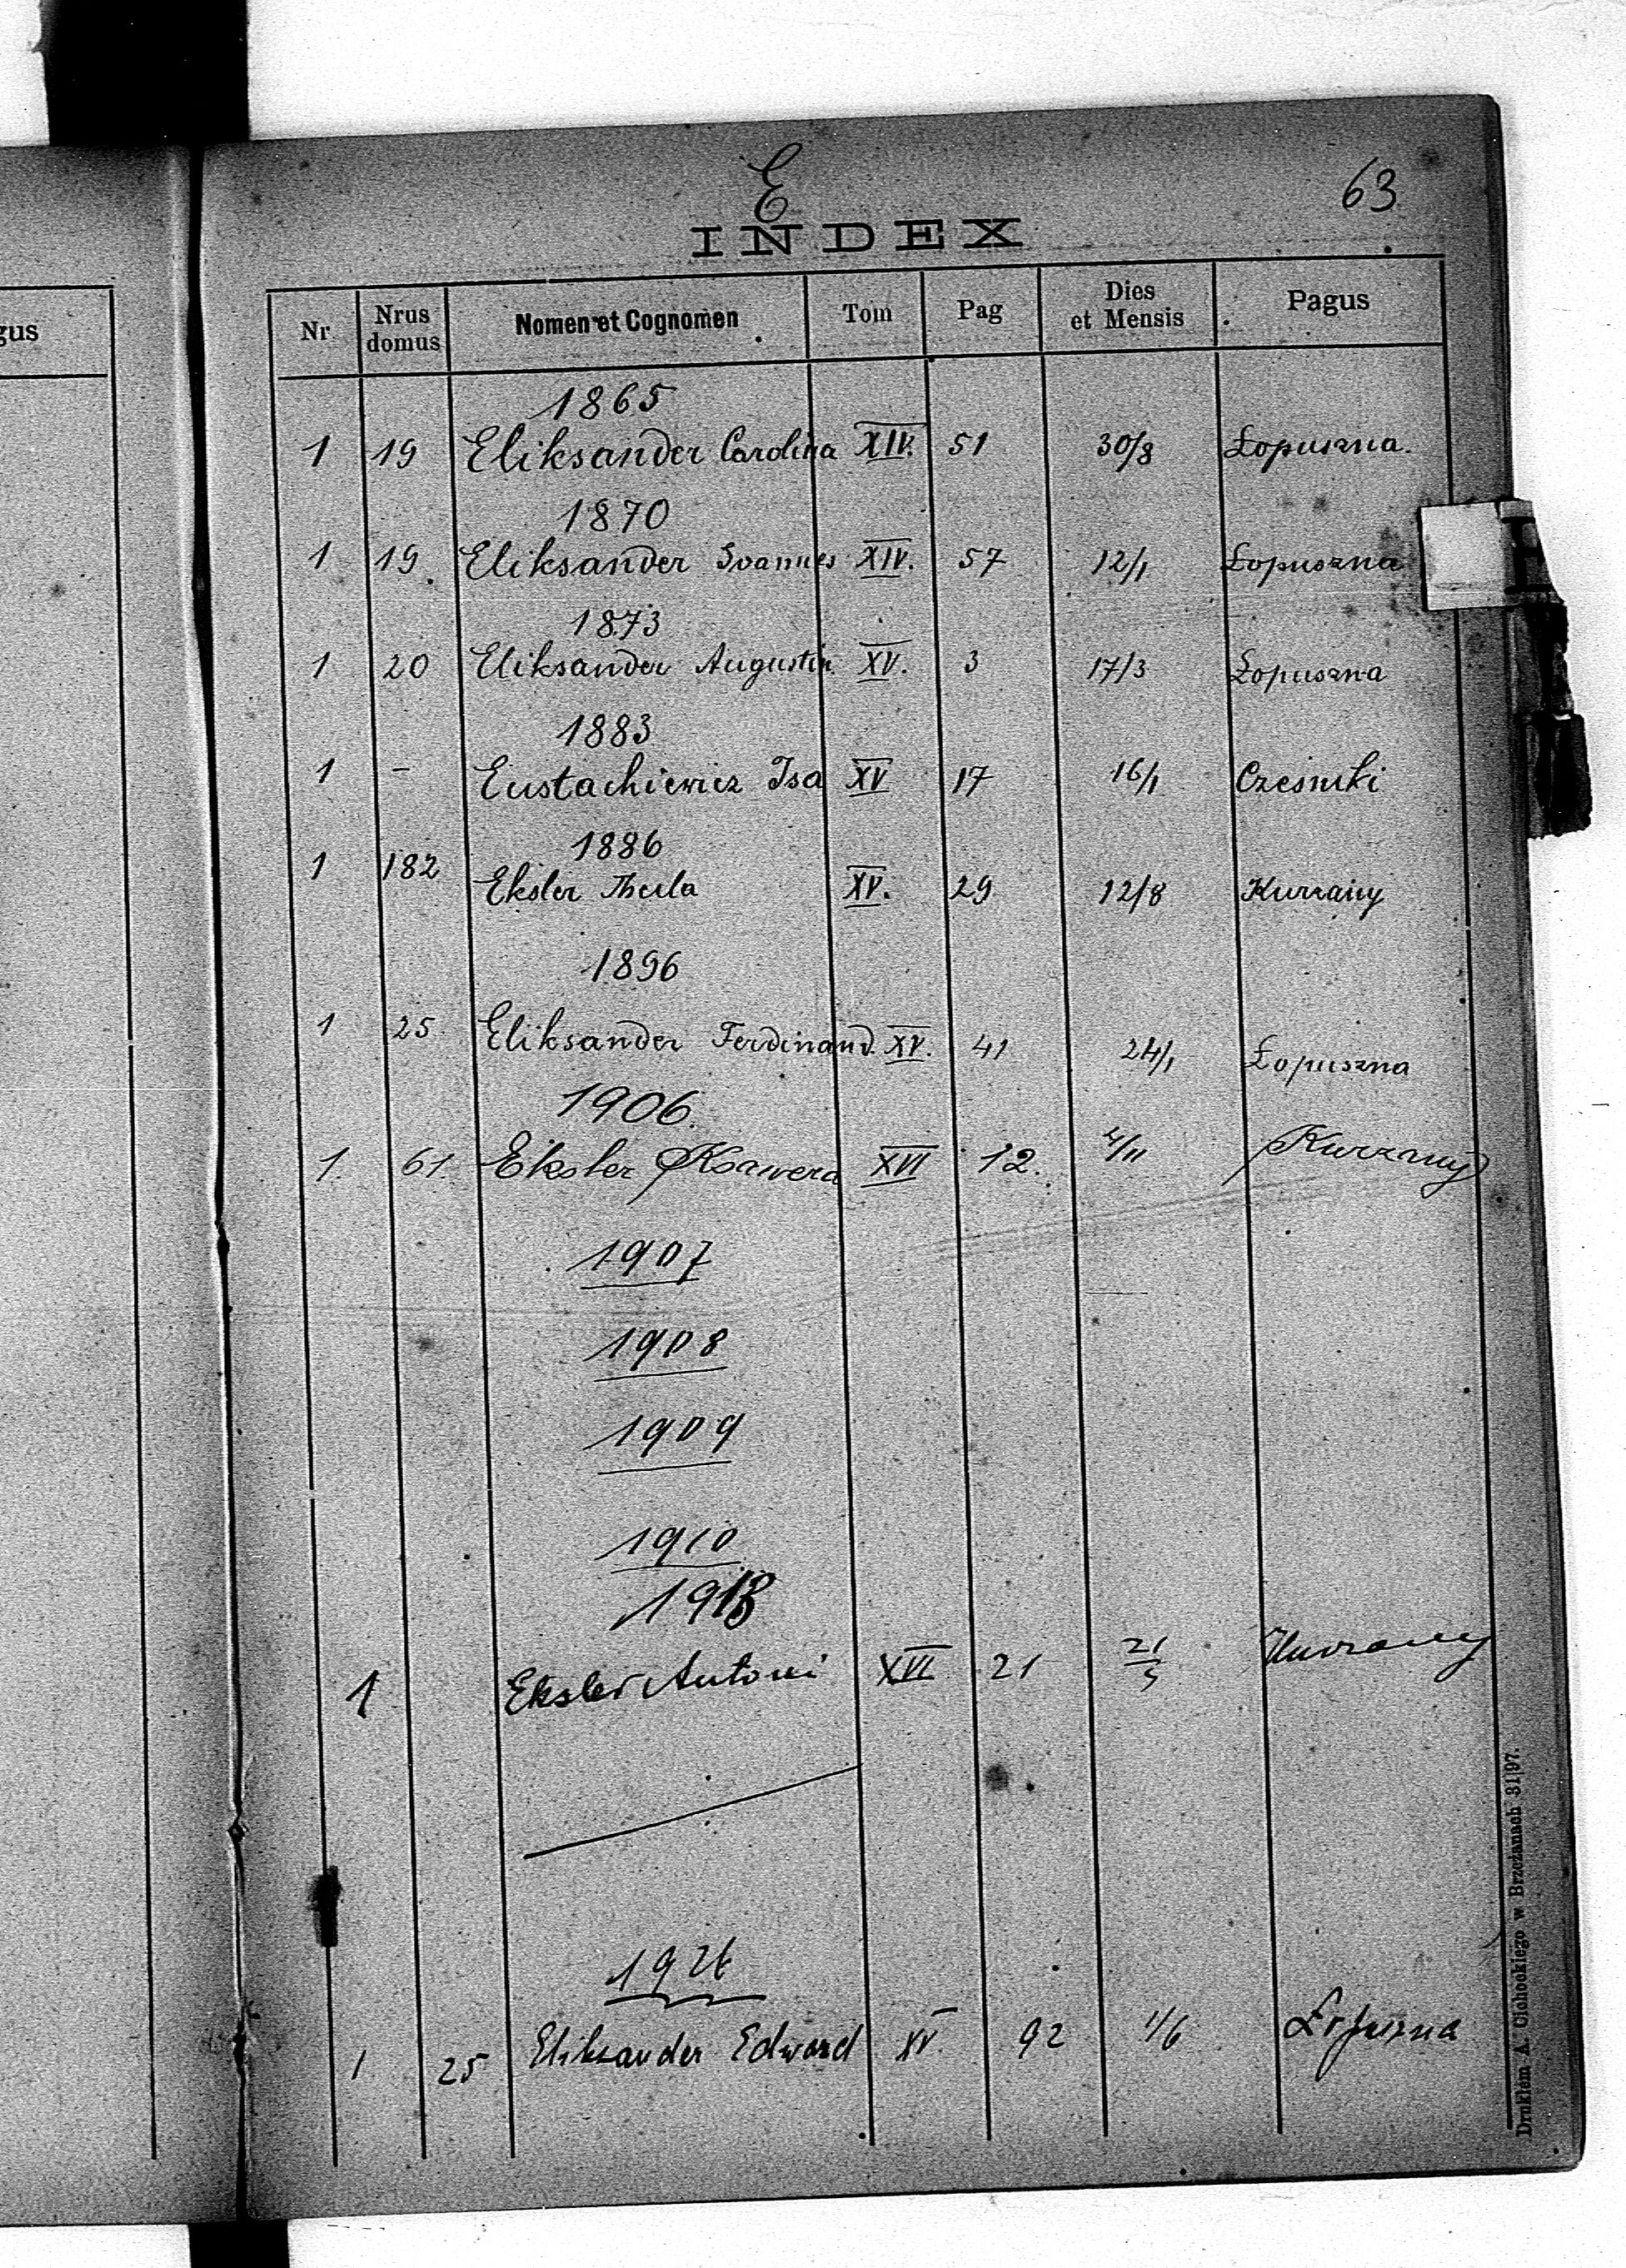 E
63
INDEX
gus
Nr Nrus domus Nomen et Cognomen Tom Pag Dies et Mensis Pagus
1865
1 19 Eliksander Carolina XIV. 51 30/8 Łopuszna.
1870
1 19. Eliksander Joannes XIV. 57 12/1 Łopuszna
1873
1 20 Eliksander Augustin. XV. 3 17/3 Łopuszna
1883
1 – Eustachiewicz Isa XV 17 16/1 Cześniki
1886
1 182 Eksler Thecla XV. 29 12/8 Kurzany
1896
1 25 Eliksander Ferdinand. XV. 41 24/1 Łopuszna
1906.
1. 61. Eksler Ksawera XVI 12. 4/11 Kurzany
1907
1908
1909
1910
1913
1 Eksler Antoni XVI 21 21/5 Kurzany
1926
1 25 Eliksander Edward XV. 92 1/6 Łopuszna
Drukiem A. Cichockiego w Brzeżanach 31|97.